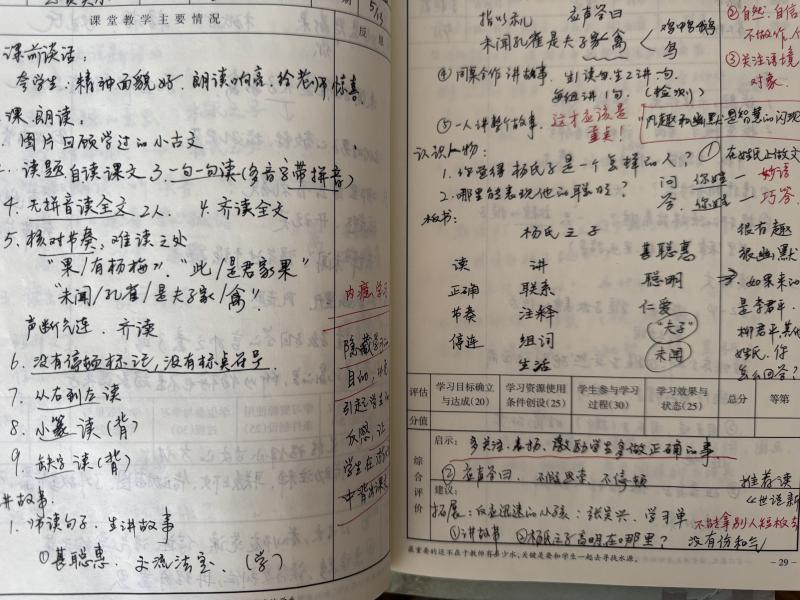 课堂教学主要情况
反馈
5/13
课前谈话:
夸学生:精神面貌好.朗读响亮.给老师惊喜.
课.朗读:
图片回顾学过的小古文
读题 自读课文 3.一句一句读(多音字带拼音)
4. 无拼音读全文 2人. 4.齐读全文
5. 核对节奏,难读之处
"果/有杨梅". "此/是君家果"
"未闻/孔雀/是夫子家/禽".
声断气连. 齐读
6. 没有停顿标记,没有标点符号.
7. 从右到左读
8. 小篆读(背)
9. 缺字读(背)
讲故事:
1. 师读句子.生讲故事
①甚聪惠. 交流法宝. (学)
隐藏学习的
目的,
引起学生的
反感,让
学生在
中背出课文
指以示儿 应声答曰
未闻孔雀是夫子家禽 < 鸡鸭鹅
鸟
④同桌合作讲故事. 生1读句.生2讲一句.
每组讲1句. (检测)
⑤一人讲整个故事. 这才应该是
重点!
②自然.自信
③关注语境
对象.
认识人物:
1.你觉得杨氏子是一个怎样的人?
2.哪里能表现他的聪明?
①在姓氏上做文
问.你姓一 妙语
答.你姓一 巧答.
板书:
杨氏之子
读 讲 甚聪惠
正确 联系 聪明
节奏 注释 仁爱
停连 组词 "夫子"
生活 未闻
很有趣
很幽默
→.如果来的
是李君平.
柳君平.其他
姓氏.你
怎么回答?
评估 学习目标确立与达成(20) 学习资源使用条件创设(25) 学生参与学习过程(30) 学习效果与状态(25) 总分 等第
分值
综合评价
启示: 多关注.表扬.激励学生多做正确的事.
②应声答曰. 不假思索.不停顿
推荐读
《世说新
建议:
拓展:反应迅速的小孩:张吴兴.学习单
①讲故事 ②杨氏之子高明在哪里? 没有伤和气
不能拿别人短板
最重要的还不在于教师有多少水,关键是要和学生一起去寻找水源。
- 29 -